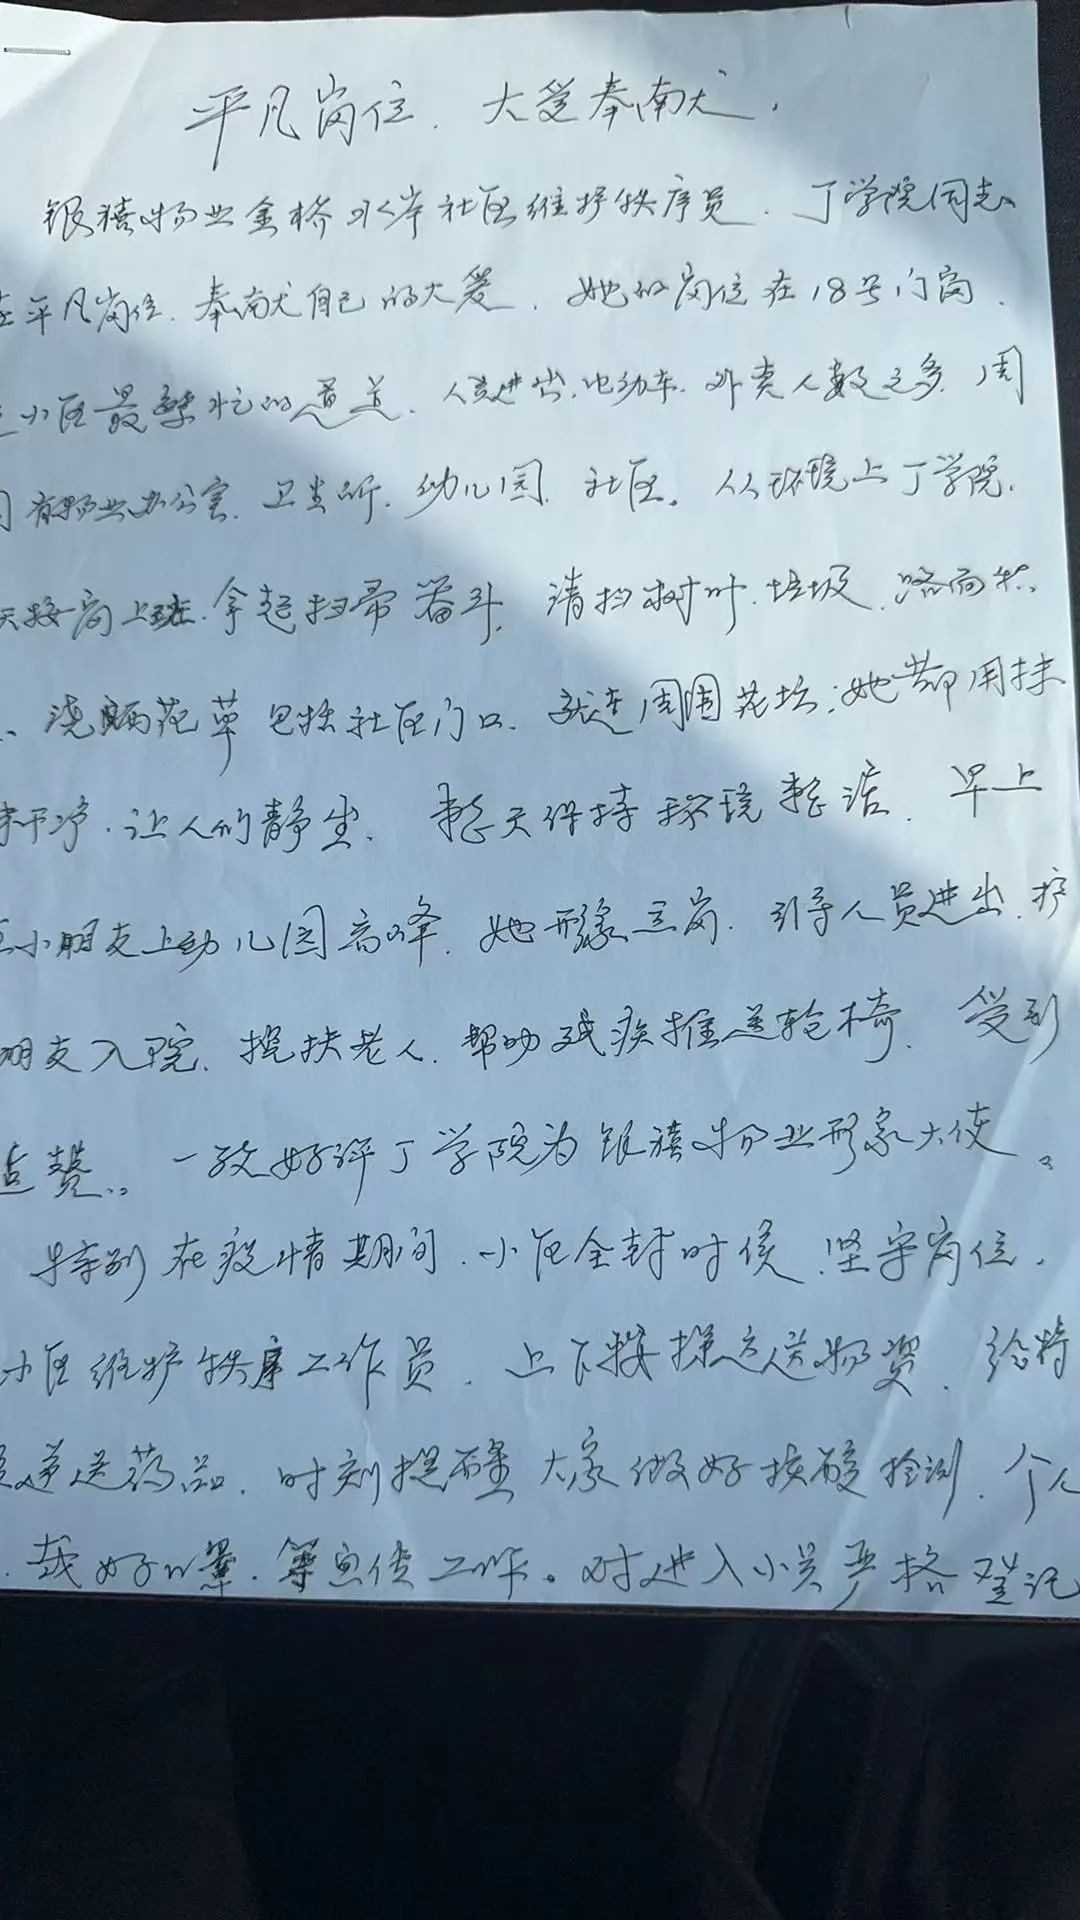 平凡岗位、大爱奉献、
银禧物业金桥水岸社区维护秩序员、丁学院同志
平凡岗位、奉献自己的大爱、她的岗位在18号门岗、
小区最繁忙的通道、人员进出、电动车、外卖人数之多、周
有物业办公室、卫生所、幼儿园、社区。从环境上丁学院、
天接岗上班、拿起扫帚畚斗、清扫树叶、垃圾、路面
浇晒花草包括社区门口、就连周围花坛;她都用抹
干净、让人们静坐、整天保持环境整洁、早上
小朋友上幼儿园高峰、她形象立岗、引导人员进出、护
朋友入院、搀扶老人、帮助残疾推送轮椅、受到
赞、一致好评丁学院为银禧物业形象大使。
特别在疫情期间、小区全封时候、坚守岗位、
小区维护秩序工作员、上下楼运送物资、给特
递送药品、时刻提醒大家做好核酸检测、个人
戴好口罩、等宣传工作。对进入小区严格登记